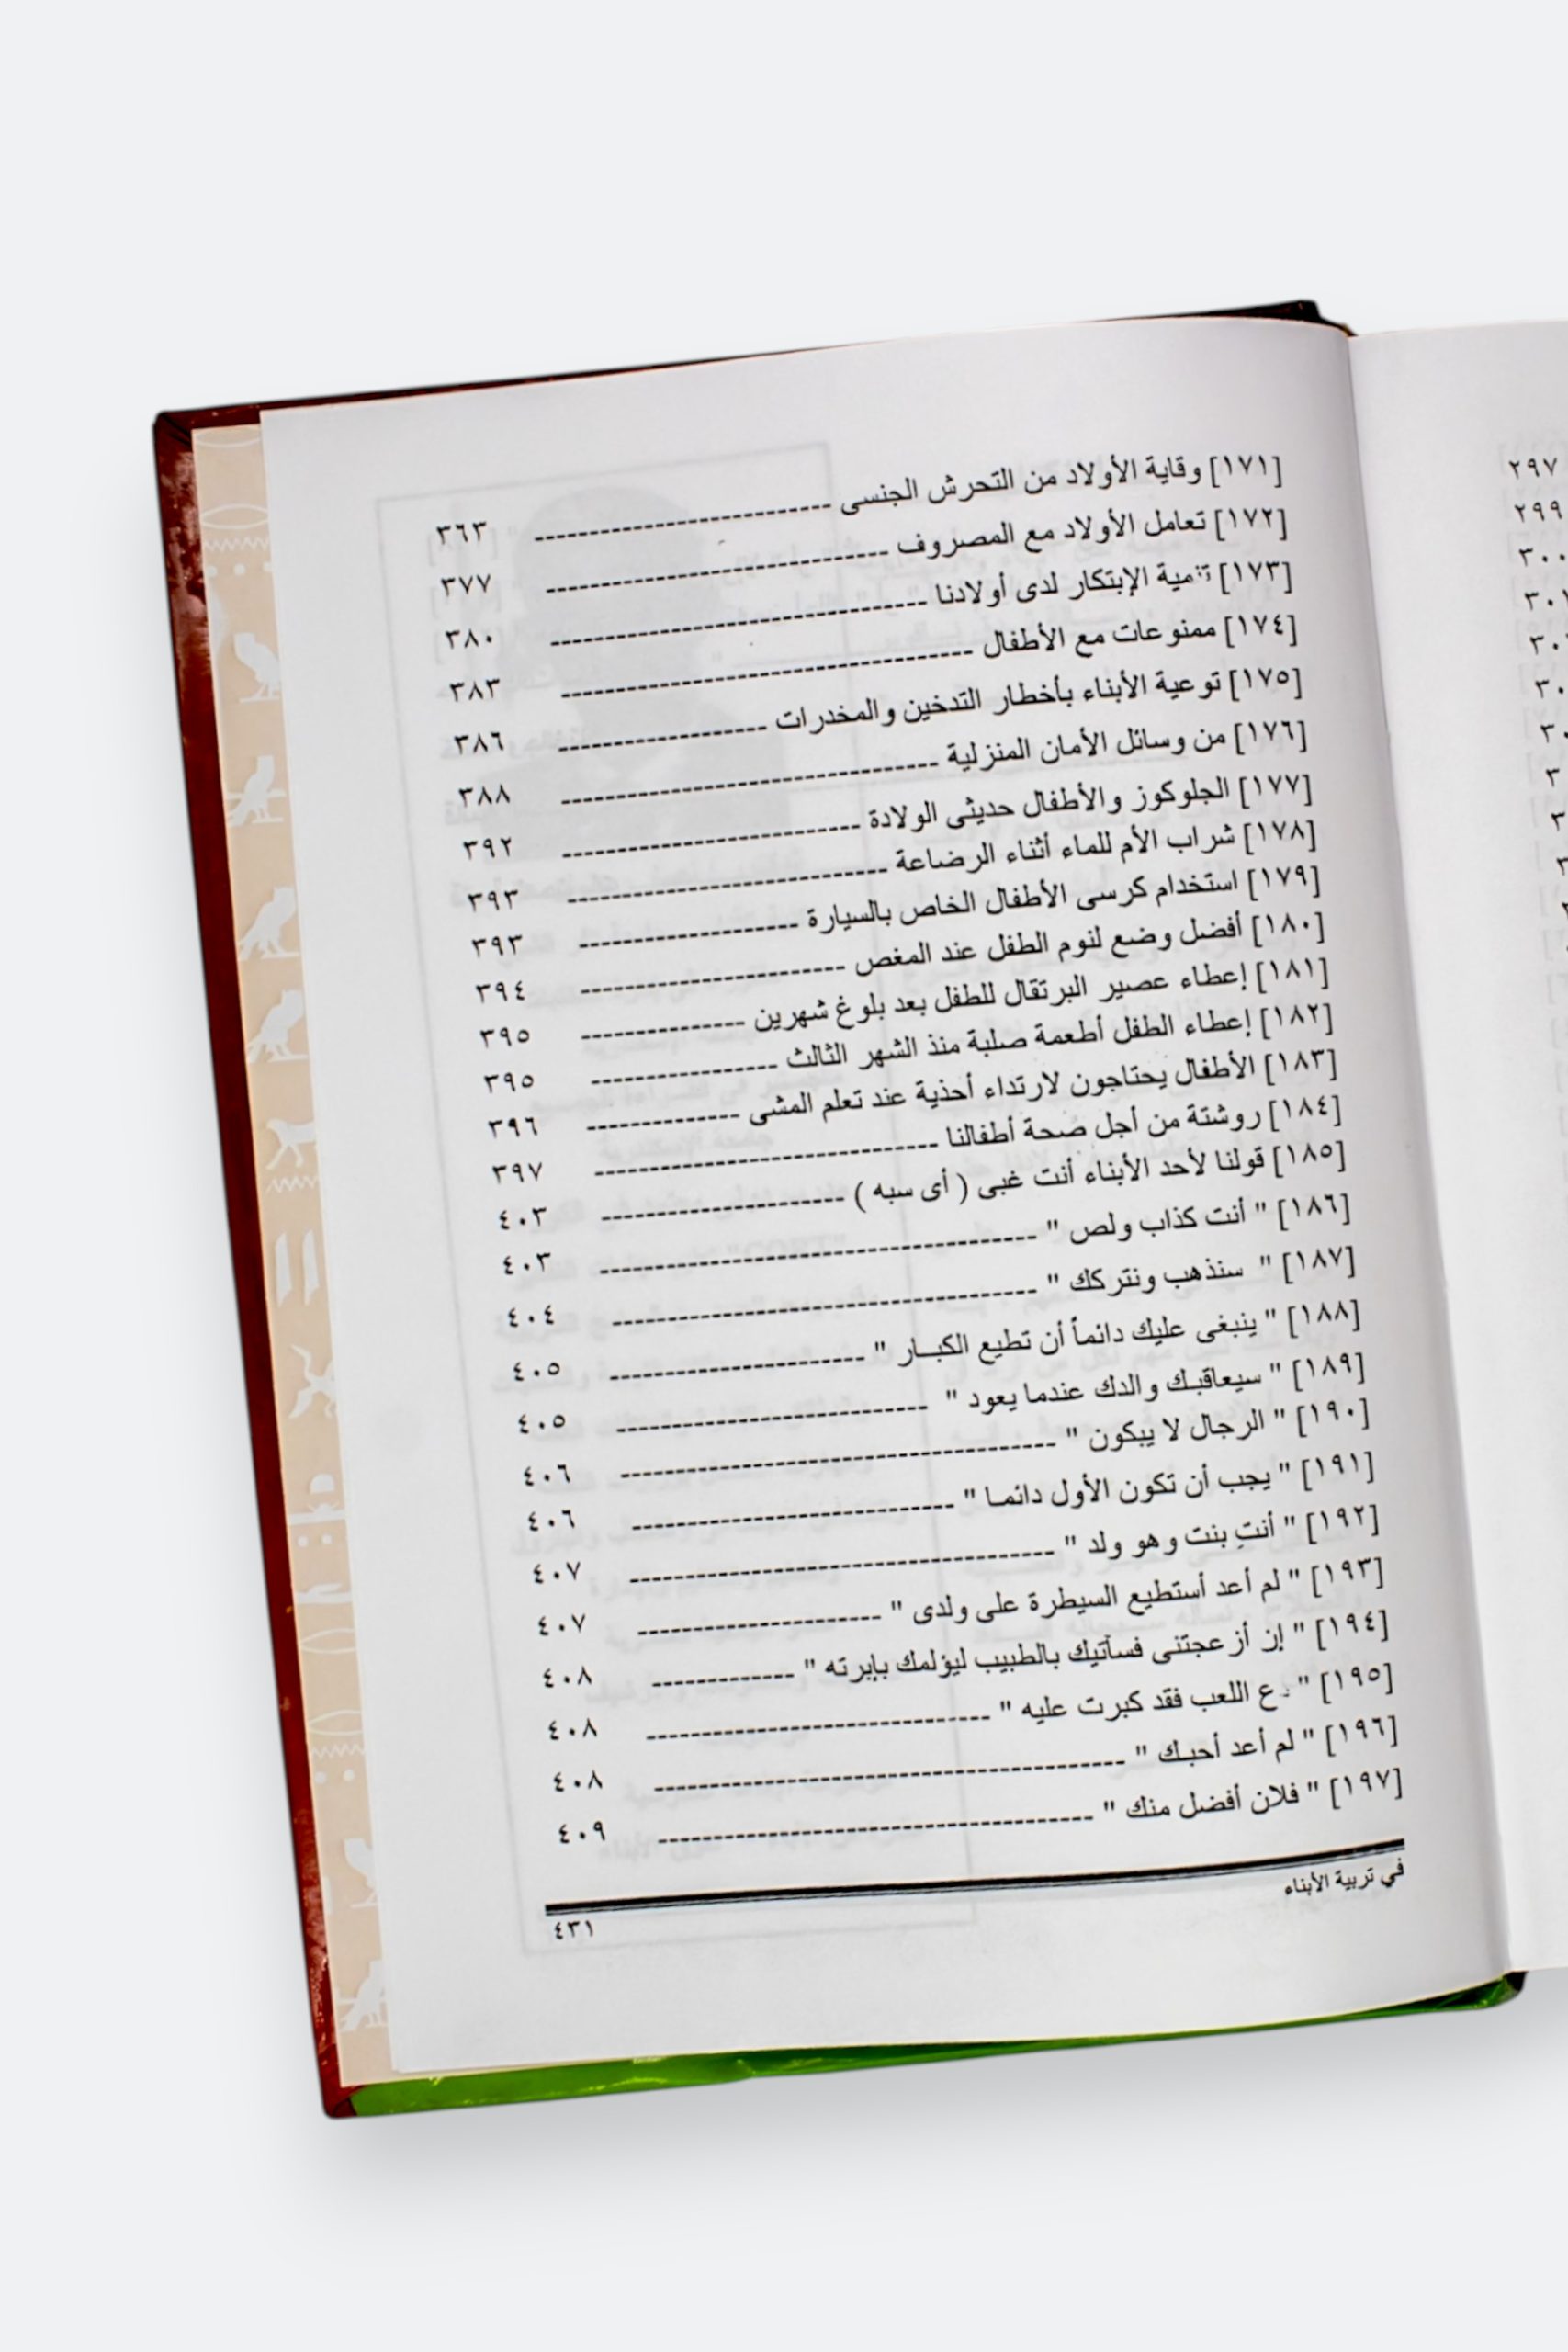 [١٧١] وقاية الأولاد من التحرش الجنسى ---------- ٣٦٣
[١٧٢] تعامل الأولاد مع المصروف ---------- ٣٧٧
[١٧٣] تنمية الإبتكار لدى أولادنا ---------- ٣٨٠
[١٧٤] ممنوعات مع الأطفال ---------- ٣٨٣
[١٧٥] توعية الأبناء بأخطار التدخين والمخدرات ---------- ٣٨٦
[١٧٦] من وسائل الأمان المنزلية ---------- ٣٨٨
[١٧٧] الجلوكوز والأطفال حديثى الولادة ---------- ٣٩٢
[١٧٨] شراب الأم للماء أثناء الرضاعة ---------- ٣٩٣
[١٧٩] استخدام كرسى الأطفال الخاص بالسيارة ---------- ٣٩٣
[١٨٠] أفضل وضع لنوم الطفل عند المغص ---------- ٣٩٤
[١٨١] إعطاء عصير البرتقال للطفل بعد بلوغ شهرين ---------- ٣٩٥
[١٨٢] إعطاء الطفل أطعمة صلبة منذ الشهر الثالث ---------- ٣٩٥
[١٨٣] الأطفال يحتاجون لارتداء أحذية عند تعلم المشى ---------- ٣٩٦
[١٨٤] روشتة من أجل صحة أطفالنا ---------- ٣٩٧
[١٨٥] قولنا لأحد الأبناء أنت غبى ( أى سبه ) ---------- ٤٠٣
[١٨٦] " أنت كذاب ولص " ---------- ٤٠٣
[١٨٧] " سنذهب ونتركك " ---------- ٤٠٤
[١٨٨] " ينبغى عليك دائماً أن تطيع الكبار " ---------- ٤٠٥
[١٨٩] " سيعاقبك والدك عندما يعود " ---------- ٤٠٥
[١٩٠] " الرجال لا يبكون " ---------- ٤٠٦
[١٩١] " يجب أن تكون الأول دائما " ---------- ٤٠٦
[١٩٢] " أنتِ بنت وهو ولد " ---------- ٤٠٧
[١٩٣] " لم أعد أستطيع السيطرة على ولدى " ---------- ٤٠٧
[١٩٤] " إن أزعجتنى فسآتيك بالطبيب ليؤلمك بإبرته " ---------- ٤٠٨
[١٩٥] " دع اللعب فقد كبرت عليه " ---------- ٤٠٨
[١٩٦] " لم أعد أحبك " ---------- ٤٠٨
[١٩٧] " فلان أفضل منك " ---------- ٤٠٩
في تربية الأبناء
٤٣١
٢٩٧
٢٩٩